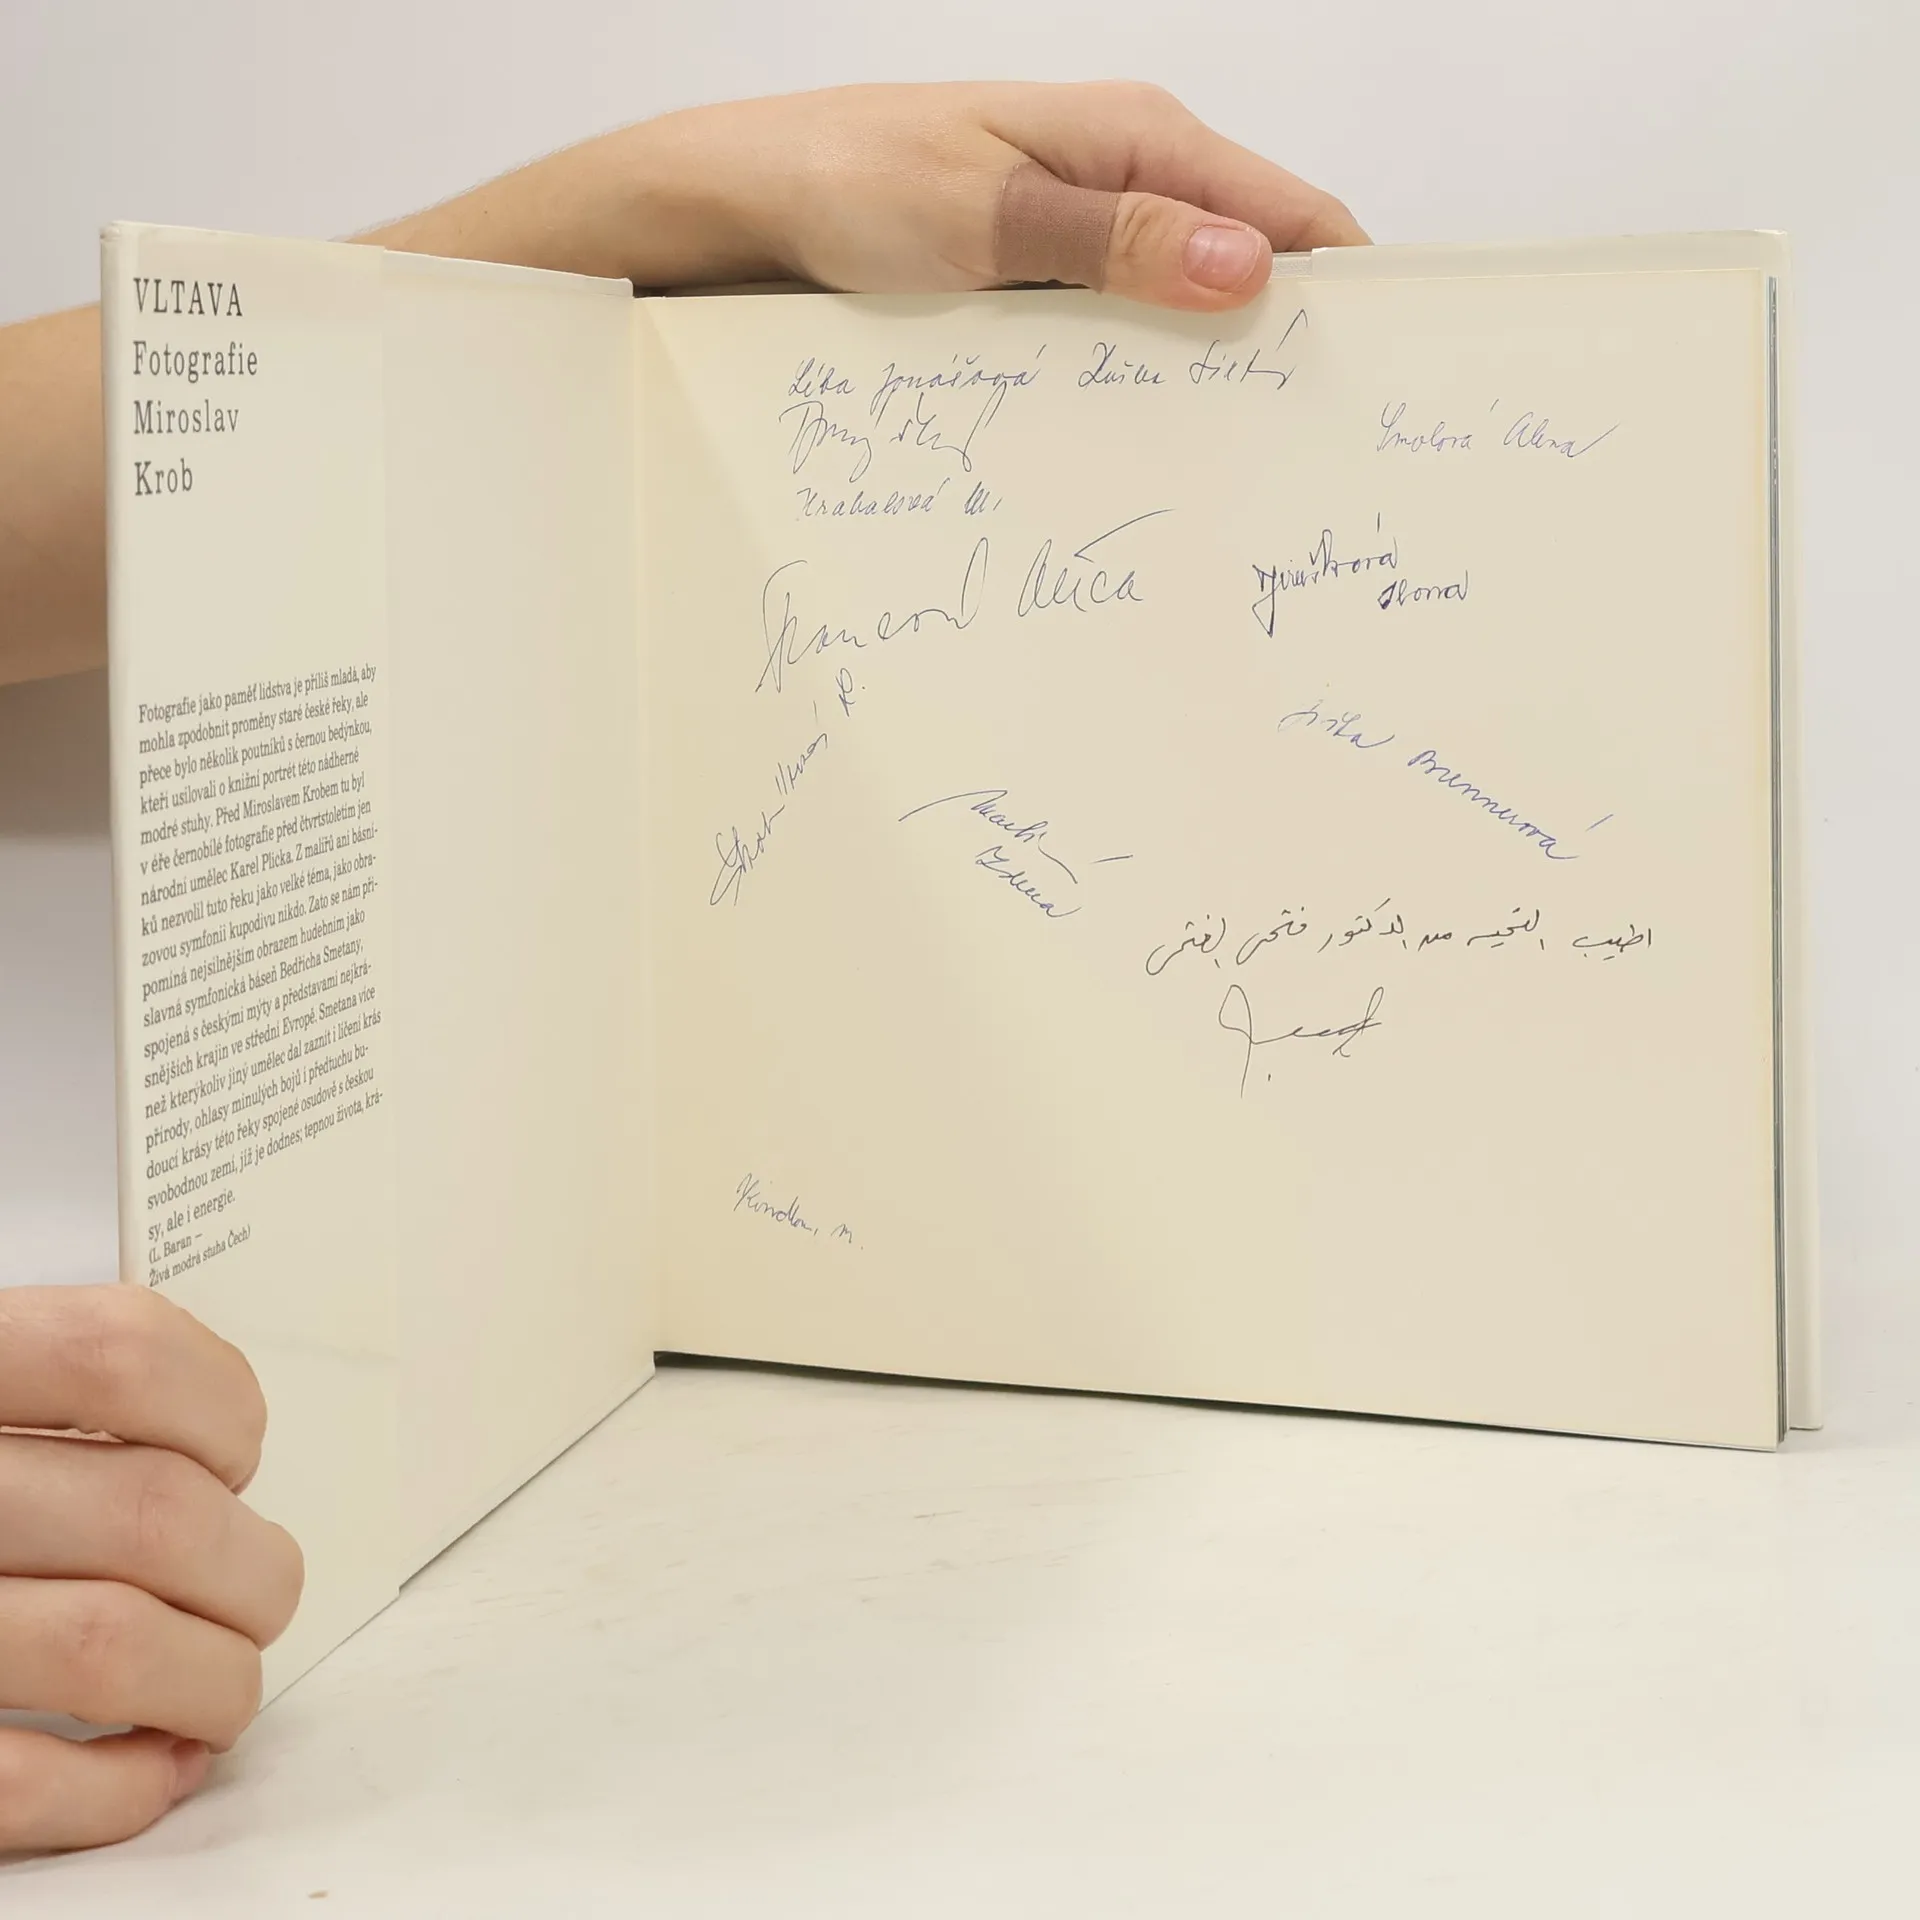 VLTAVA
Fotografie
Miroslav
Krob
Fotografie jako paměť lidstva je příliš mladá, aby
mohla zpodobnit proměny staré české řeky, ale
přece bylo několik poutníků s černou bedýnkou,
kteří usilovali o knižní portrét této nádherné
modré stuhy. Před Miroslavem Krobem tu byl
v éře černobílé fotografie před čtvrtstoletím jen
národní umělec Karel Plicka. Z malířů ani básní-
ků nezvolil tuto řeku jako velké téma, jako obra-
zovou symfonii kupodivu nikdo. Zato se nám při-
pomíná nejsilnějším obrazem hudebním jako
slavná symfonická báseň Bedřicha Smetany,
spojená s českými mýty a představami nejkrá-
snějších krajin ve střední Evropě. Smetana více
než kterýkoliv jiný umělec dal zaznít i líčení krás
přírody, ohlasy minulých bojů i předtuchu bu-
doucí krásy této řeky spojené osudově s českou
svobodnou zemí, jíž je dodnes; tepnou života, krá-
sy, ale i energie.
(L. Baran –
Živá modrá stuha Čech)
Líba Jonášová
Smolová Alena
Hrabalová M.
Francová
Jiroušková
Ilona
Jiřka Brunnerová
Zdena
اطيب التحيه من الدكتور فتحي
M.